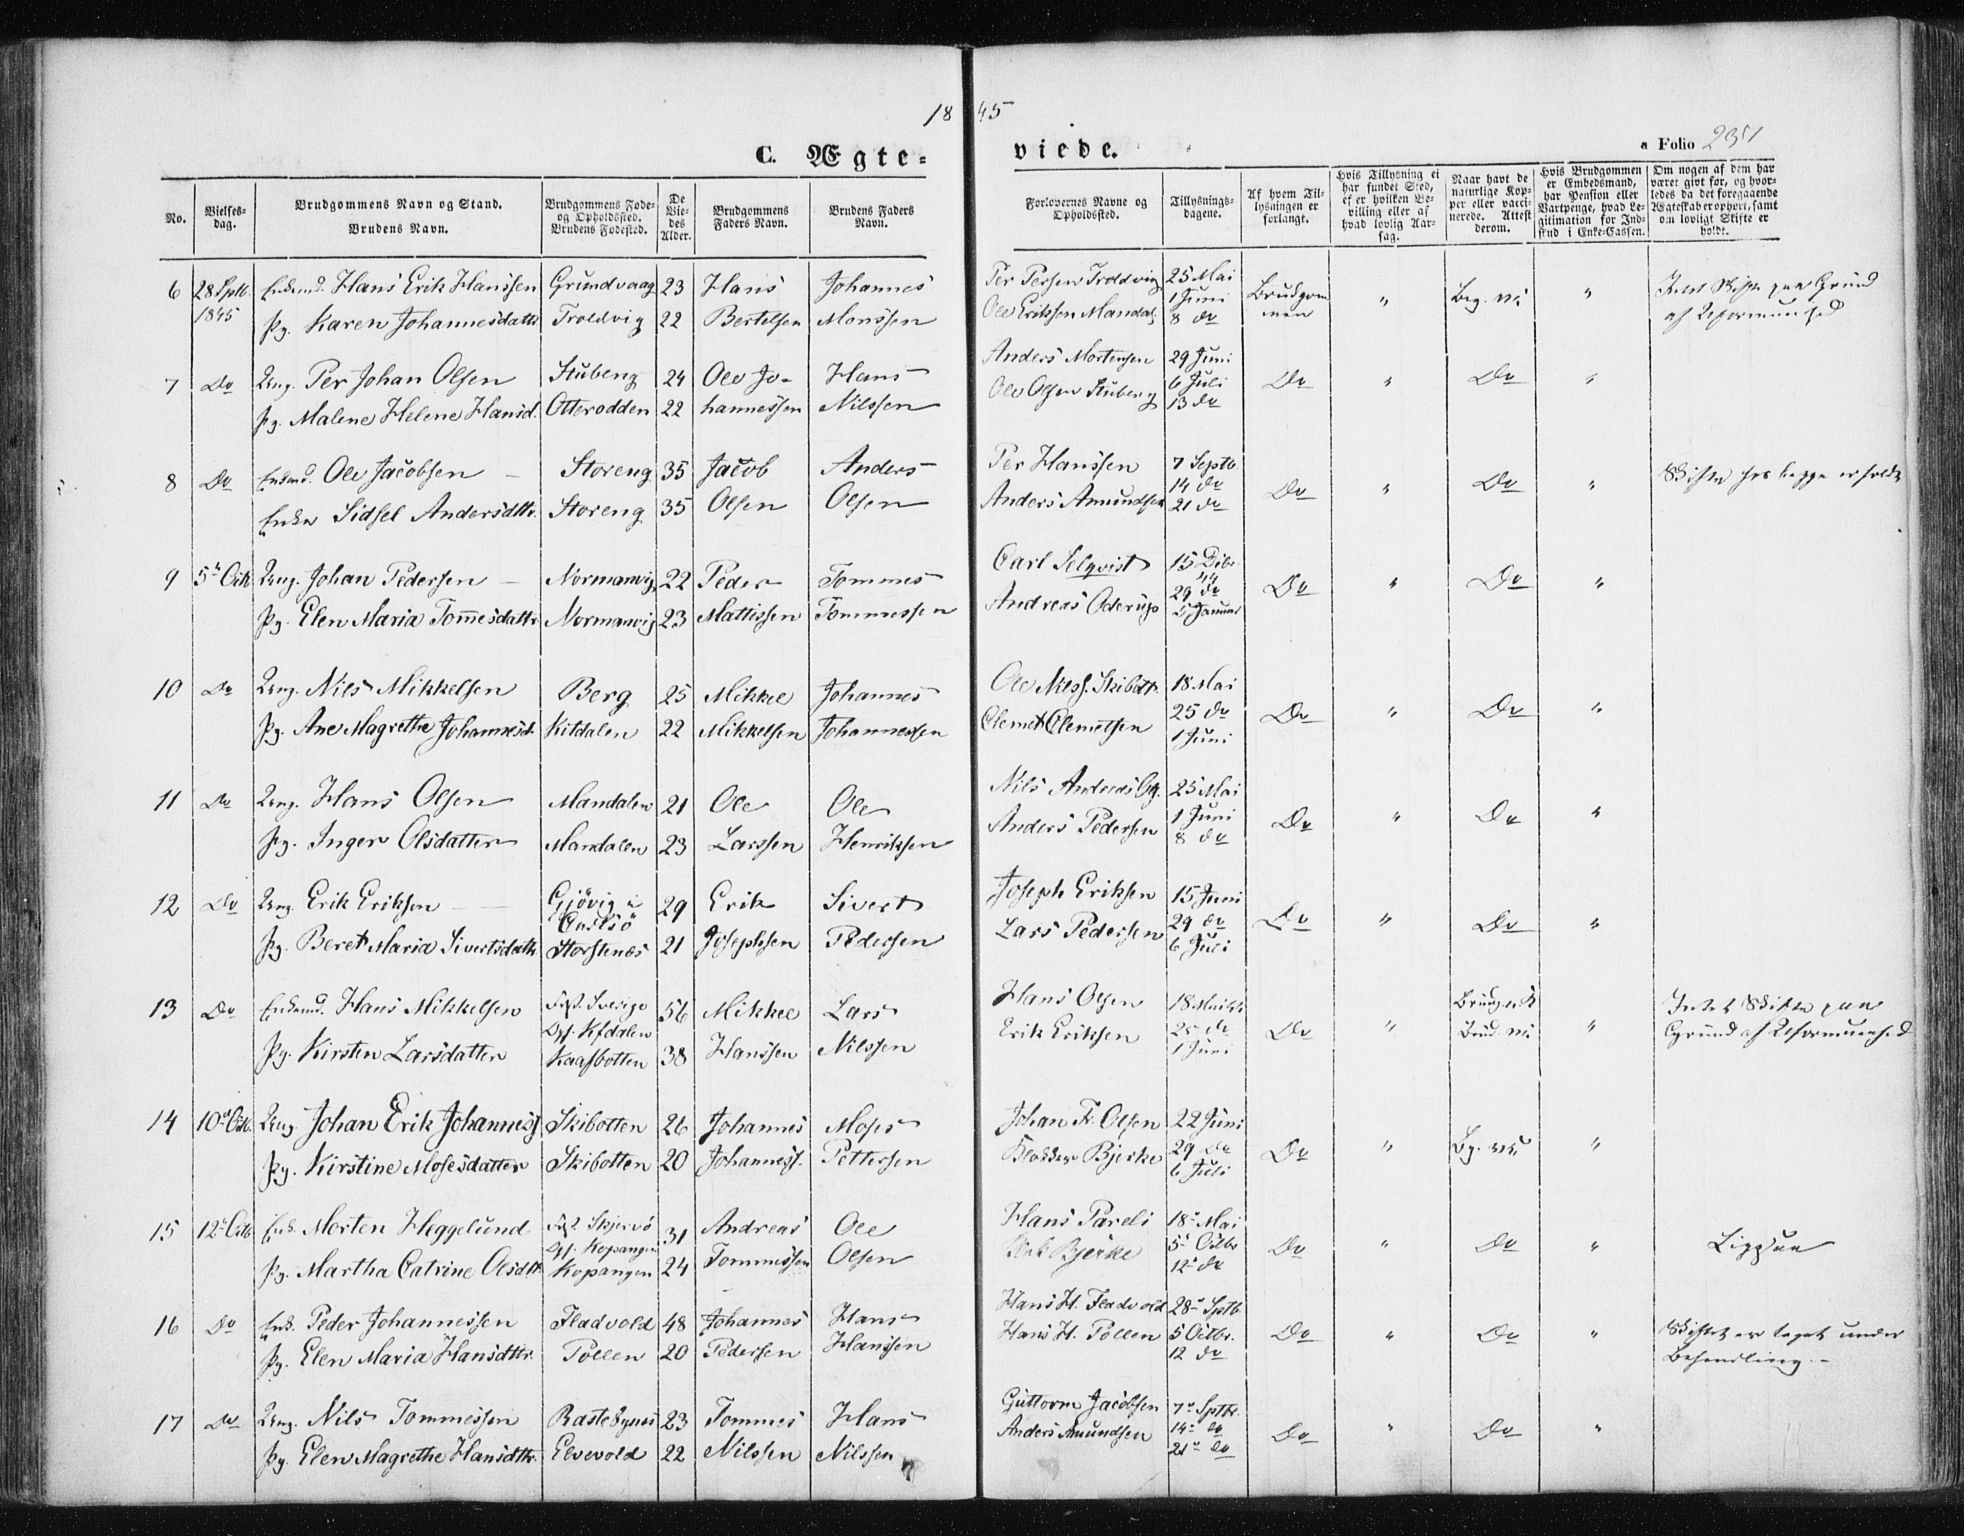 18 45
C. Ægte- viede.
a Folio 237
No.
Vielses-
dag.
Brudgommens Navn og Stand.
Brudens Navn.
Brudgommens Føde-
og Opholdssted.
Brudens Fødested.
De
Vie-
des
Alder.
Brudgommens
Faders Navn.
Brudens Faders
Navn.
Forlovernes Navne og
Opholdssted.
Tillysnings-
dagene.
Af hvem Til-
lysningen er
forlangt.
Hvis Tillysning ei
har fundet Sted,
ef er hvilken Be-
villing eller af
hvad lovlig Aar-
sag.
Naar havt de
naturlige Kop-
per eller vacci-
nerede. Attest
derom.
Hvis Brudgommen
er Embedsmand,
har Pension eller
Vartpenge, hvad Le-
gitimation for Ind-
skud i Enke-Cassen.
Om nogen af dem har
været givt før, og hvor-
ledes da det foregaaende
Ægteskab er ophørt, samt
om lovligt Skifte er
holdt.
6 28 Sptb. Enkemd. Hans Erik Hanssen Grundvaag 23 Hans Johannes
1845 Pg. Karen Johannesdattr Troldvig 22 Bertelsen Monssen
Per Persen Troldvig 25 Mai
Ole Eriksen Mandal 1 Juni
8 do
Brudgom
men " Brg. "
Intet Skifte paa Grund
af Uformuenhed
7 Do Ung. Per Johan Olsen Stubeng 24 Ole Jo- Hans
Pg. Malene Helene Hansd. Otterodden 22 hannessen Nilssen
Anders Mortensen 29 Juni
Ole Olsen Stubeng 6 Juli
13 do
Do " Do "
8 Do Enkmd. Ole Jacobsen Storeng 35 Jacob Anders
Enke Sidsel Andersdtr. Storeng 35 Olsen Olsen
Per Hanssen 7 Septb.
Anders Amundsen 14 do
21 do
Do " Do "
Skifte hos begge erholdt
9 5te Octb Ung. Johan Pedersen Normanvig 22 Peder Tommes
Pg. Elen Maria Tom̅esdattr. Normanvig 23 Mattissen Tommessen
Carl Selqvist 15 Dcbr
44
Andreas Oderup 29 do
5 Januar
Do " Do "
10 Do Ung. Nils Mikkelsen Berg 25 Mikkel Johannes
Pg. Ane Magrethe Johannesd. Kitdalen 22 Mikkelsen Johannessen
Ole Nilss. Skibott. 18 Mai
Clemet Clemetsen 25 do
1 Juni
Do " Do "
11 Do Ung. Hans Olsen Mandalen 21 Ole Ole
Pg. Inger Olsdatter Mandalen 23 Larssen Henriksen
Nils Andreas 25 Mai
Anders Pedersen 1 Juni
8 do
Do " Do "
12 Do Ung. Erik Eriksen Gjövig i
Carlsö 29 Erik Sivert
Pg. Beret Maria Sivertsdattr Storstenes 21 Josephsen Pedersen
Joseph Eriksen 15 Juni
Lars Pedersen 29 do
6 Juli
Do " Do "
13 Do Enkemd. Hans Mikkelsen Fød. Sverige
Oph. Kitdalen 56 Mikkel Lars
Pg. Kirsten Larsdatter Kaafbotten 38 Hanssen Nilssen
Hans Olsen 18 Mai
Erik Eriksen 25 do
1 Juni
Do " "
Intet Skifte paa
Grund af Uformuenhed
14 10de Octb. Ung. Johan Erik Johanness Skibotten 26 Johannes Moses
Pg. Kirstine Mosesdatter Skibotten 20 Johanness. Pettersen
Johan Fr. Olsen 22 Juni
Bjerke 29 do
6 Juli
Do " Bg. "
15 12te Octb Enk. Morten Heggelund Fød. Skjervö
Oph. Kopangen 31 Andreas Ole
Pg. Martha Catrine Olsdtr. Kopangen 24 Tommessen Olsen
Hans Pareli 18de Mai
Bjerke 5te Octbr
12te do
Do " Do "
Ligesaa
16 Do Enk. Peder Johannessen Fladvold 48 Johannes Hans
Pg. Elen Maria Hansdttr. Pollen 20 Pedersen Hanssen
Hans H. Fladvold 28de Sptb
Hans H. Pollen 5 Octbr.
12 do
Do " Do "
Skiftet er taget under
Behandling.
17 Do Ung. Nils Tommessen Rastebynes 23 Tommes Hans
Pg. Elen Magrethe Hansdttr. Elvevold 22 Nilssen Nilssen
Guttorm Jacobsen 7de Sptbr.
Anders Amundsen 14de do
21de do
Do " Do "